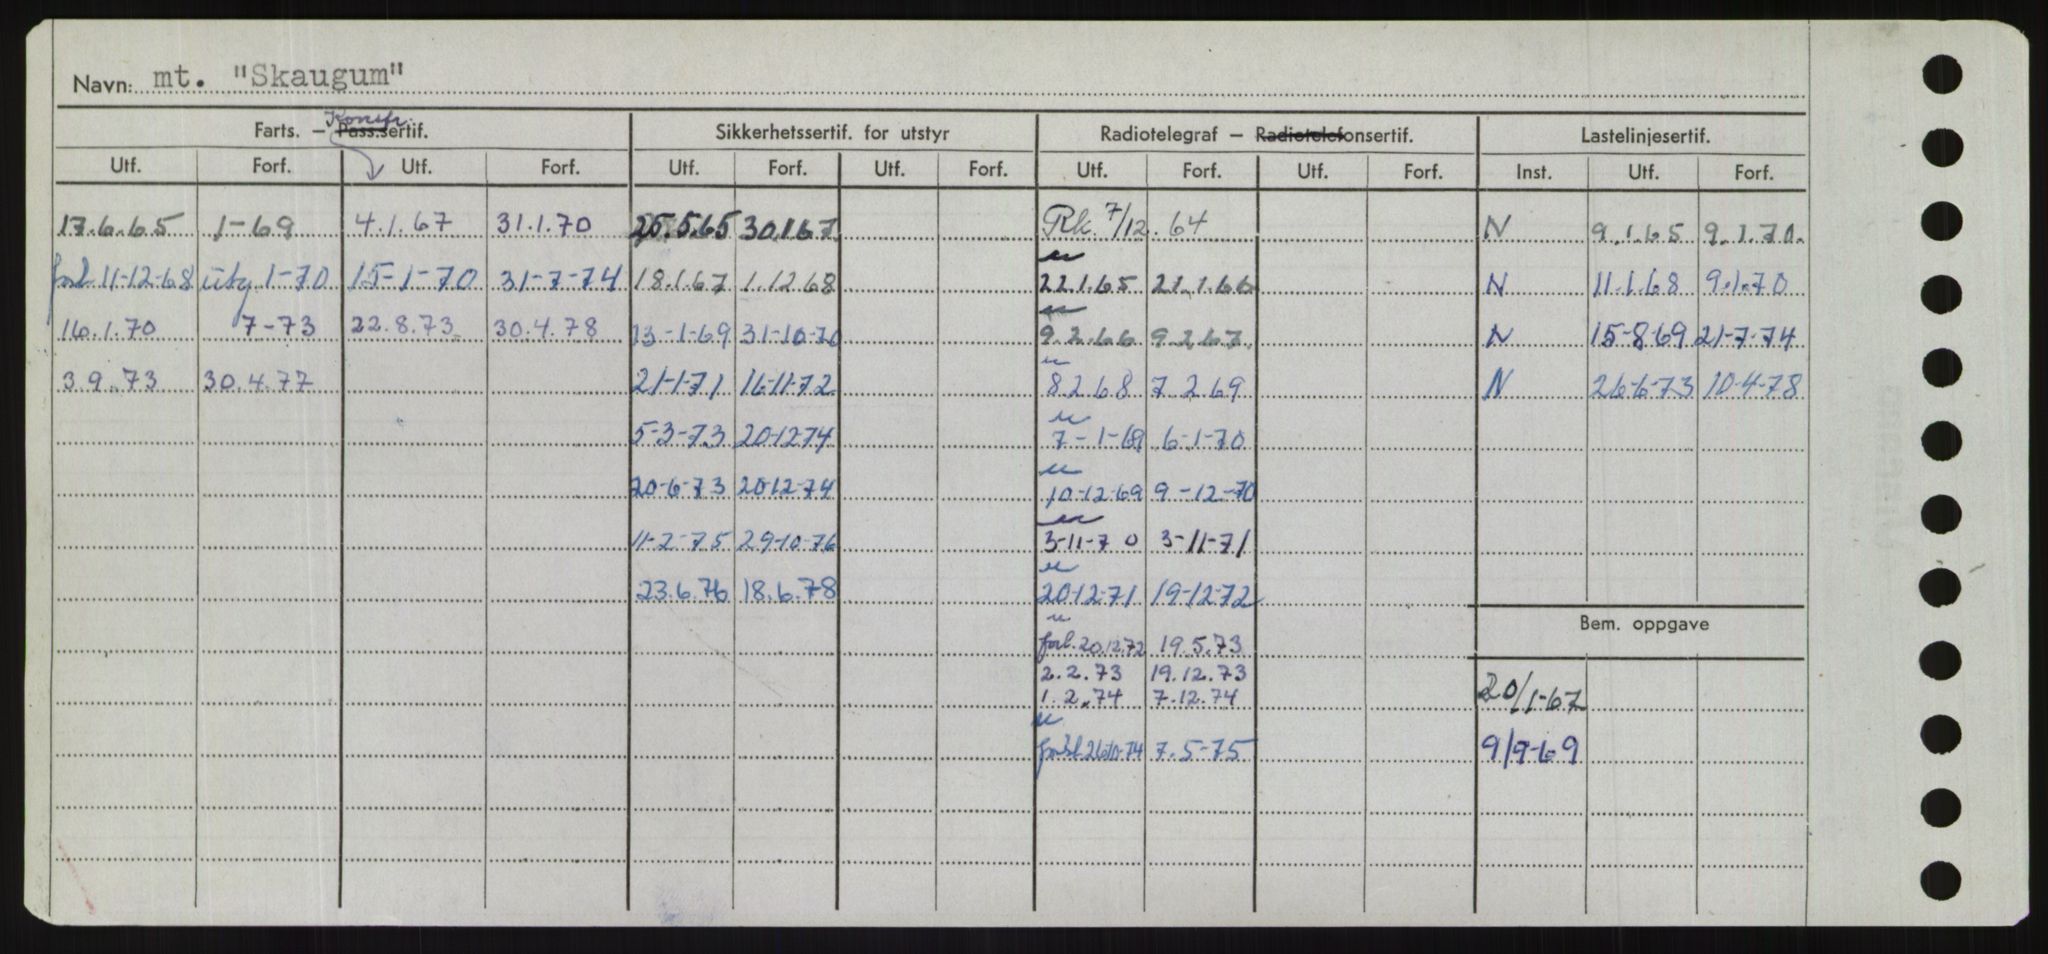 Navn: mt. "Skaugum"
Konstr.
Farts. – Pass.sertif. Sikkerhetssertif. for utstyr Radiotelegraf – Radiotelefonsertif. Lastelinjesertif.
Utf. Forf. Utf. Forf. Utf. Forf. Utf. Forf. Utf. Forf. Utf. Forf. Inst. Utf. Forf.
17.6.65 1-69 4.1.67 31.1.70 25.5.65 30.1.67 Rk. 7/12.64 N 9.1.65 9.1.70.
forl 11-12-68 utg 1-70 15-1-70 31-7-74 18.1.67 1.12.68 22.1.65 21.1.66 N 11.1.68 9.1.70
16.1.70 7-73 22.8.73 30.4.78 13-1-69 31-10-70 9.2.66 9.2.67 N 15-8-69 21-7-74
3.9.73 30.4.77 21-1-71 16-11-72 8.2.68 7.2.69 N 26-6-73 10-4-78
5-3-73 20-12-74 7-1-69 6-1-70
20-6-73 20-12-74 10-12-69 9-12-70
11-2-75 29-10-76 3-11-70 3-11-71
23.6.76 18.6.78 20-12-71 19-12-72
Bem. oppgave
forl. 20.12.72 19.5.73
2.2.73 19.12.73
20/1-67
1.2.74 7.12.74
forl. 26-10-74 7.5-75 9/9-69